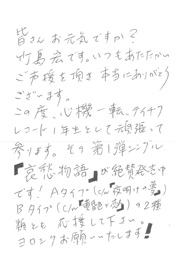 皆さんお元気ですか?
竹島宏です。いつもあたたかい
ご声援を頂き本当にありがとう
ございます。
この度、心機一転、テイチク
レコード1年生として頑張って
参ります。その第1弾シングル
『哀愁物語』が絶賛発売中
です! Aタイプ(c/w夜明けの
Bタイプ(c/w の2種
類とも応援して下さい。
ヨロシクお願いいたします!